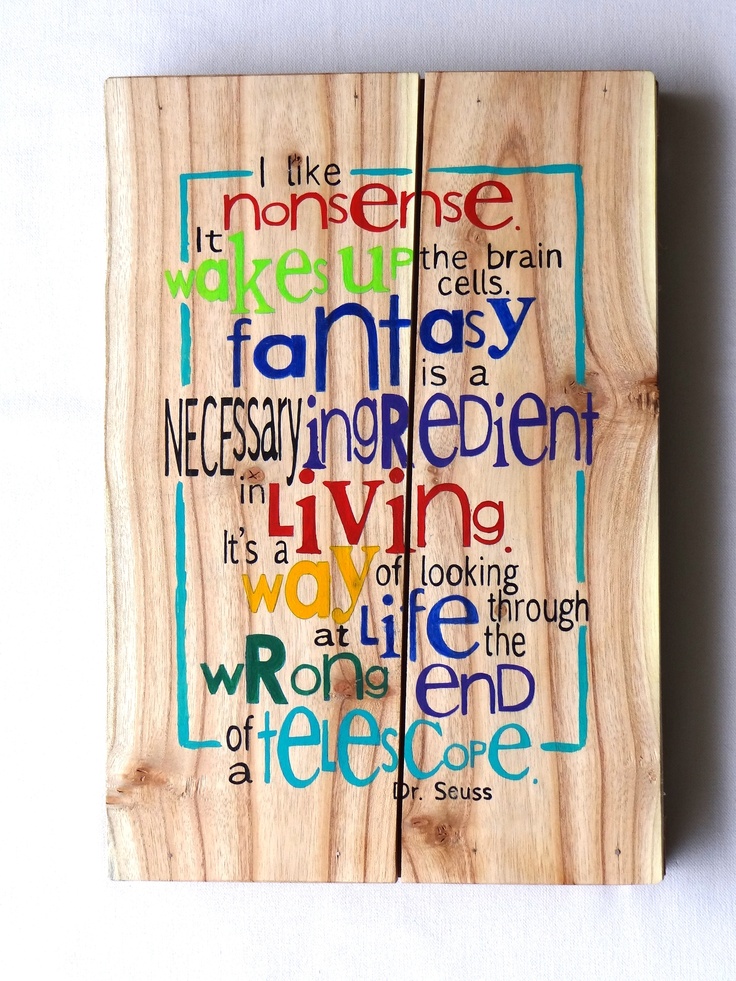 I like
nonsense.
It
wakes up the brain
cells.
fantasy
is a
NECEssary ingREDient
in Living.
It's a
way of looking
at Life through
the
wRong enD
of a teLescope.
Dr. Seuss